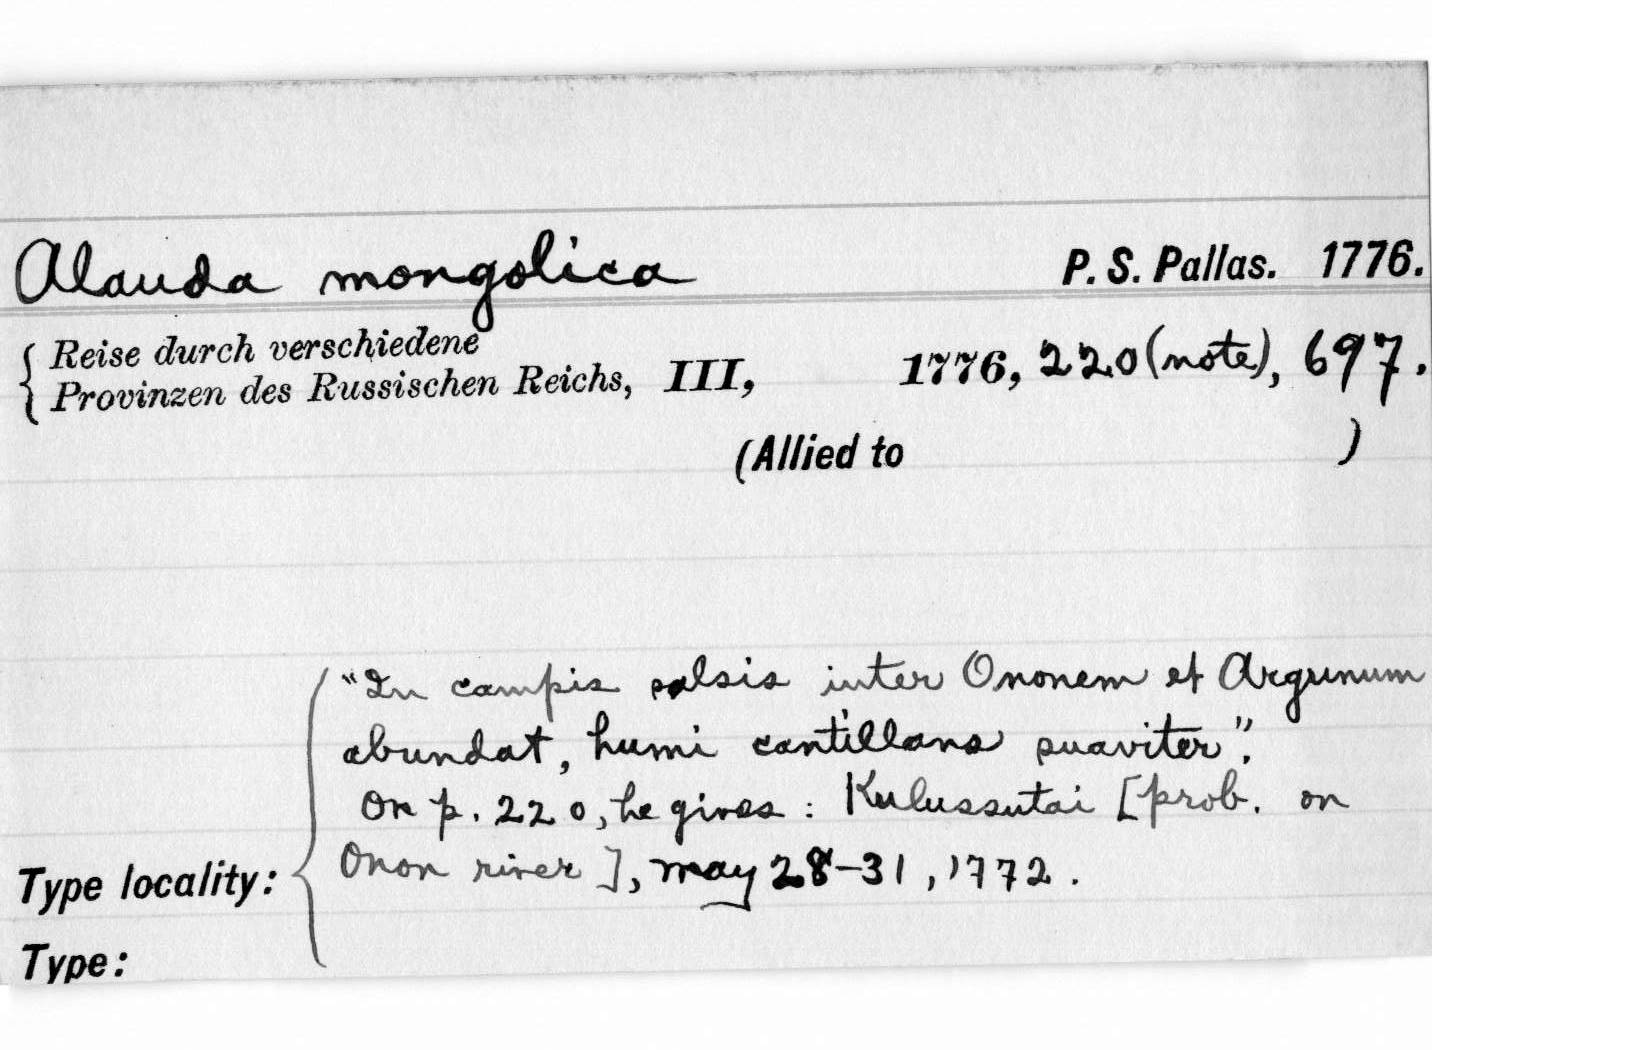 Alauda mongolica P. S. Pallas. 1776.
Reise durch verschiedene
Provinzen des Russischen Reichs, III, 1776, 220 (note), 697.
(Allied to )
"In campis salsis inter Ononem et Argunum
abundat, humi cantillans suaviter".
On p. 220, he gives : Kulussutai [prob. on
Type locality: Onon river], May 28-31, 1772.
Type: